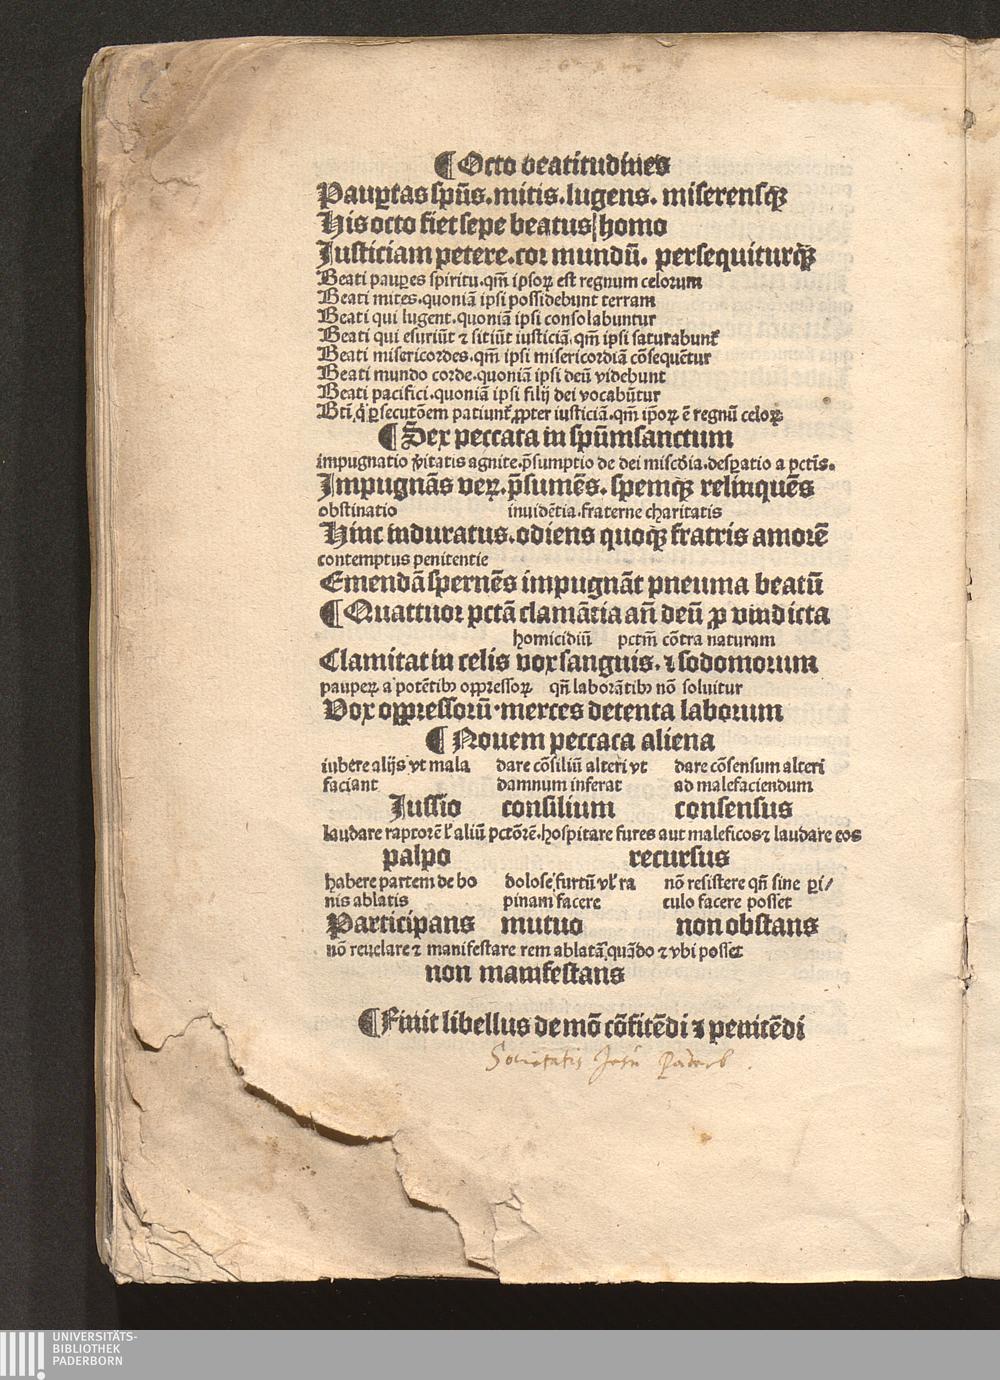 ¶ Octo beatitudines
Paup̲tas spūs. mitis. lugens. miserensqꝫ
His octo fiet sepe beatus/homo
Iusticiam petere. cor mundū. persequiturqꝫ
Beati paup̲es spiritu. qm̄ ipsoꝝ est regnum celorum
Beati mites. quoniā ipsi possidebunt terram
Beati qui lugent. quoniā ipsi consolabuntur
Beati qui esuriūt ⁊ sitiūt iusticiā. qm̄ ipsi saturabunt᷑
Beati misericordes. qm̄ ipsi misericordiā cōsequētur
Beati mundo corde. quoniā ipsi deū videbunt
Beati pacifici. quoniā ipsi filij dei vocabūtur
Bti̅. q̇ ꝑsecutōem patiunt᷑ ꝓpter iusticiā. qm̄ ip̄oꝝ ē regnū celoꝝ
¶ Sex peccata in spūmsanctum
impugnatio v̓itatis agnite. p̄sumptio de dei misc̄dia. desꝑatio a pctīs.
Impugnās veꝝ. p̄sumēs. spemqꝫ relinquēs
obstinatio invidētia. fraterne charitatis
Hinc induratus. odiens quoqꝫ fratris amorē
contemptus penitentie
Emendā spernēs impugnāt pneuma beatū
¶ Quattuor pctā clamātia añ deū ꝓ vindicta
homicidiū pctm̄ cōtra naturam
Clamitat in celis vox sanguis. ⁊ sodomorum
pauperꝝ a potētibꝰ oppressoꝝ qñ laborātibꝰ nō soluitur
Vox oppressorū. merces detenta laborum
¶ Nouem peccaca aliena
iubere alijs vt mala dare cōsiliū alteri vt dare cōsensum alteri
faciant damnum inferat ad malefaciendum
Iussio consilium consensus
laudare raptorē l᷑ aliū pctōrē. hospitare fures aut maleficos ⁊ laudare eos
palpo recursus
habere partem de bo dolose furtū vl᷑ ra nō resistere qñ sine ꝑi/
nis ablatis pinam facere culo facere posset
Participans mutuo non obstans
nō reuelare ⁊ manifestare rem ablatā. quādo ⁊ vbi posset
non manifestans
¶ Finit libellus de mō cōfitēdi ⁊ penitēdi
Societatis Jesu Paderb.
UNIVERSITÄTS-
BIBLIOTHEK
PADERBORN